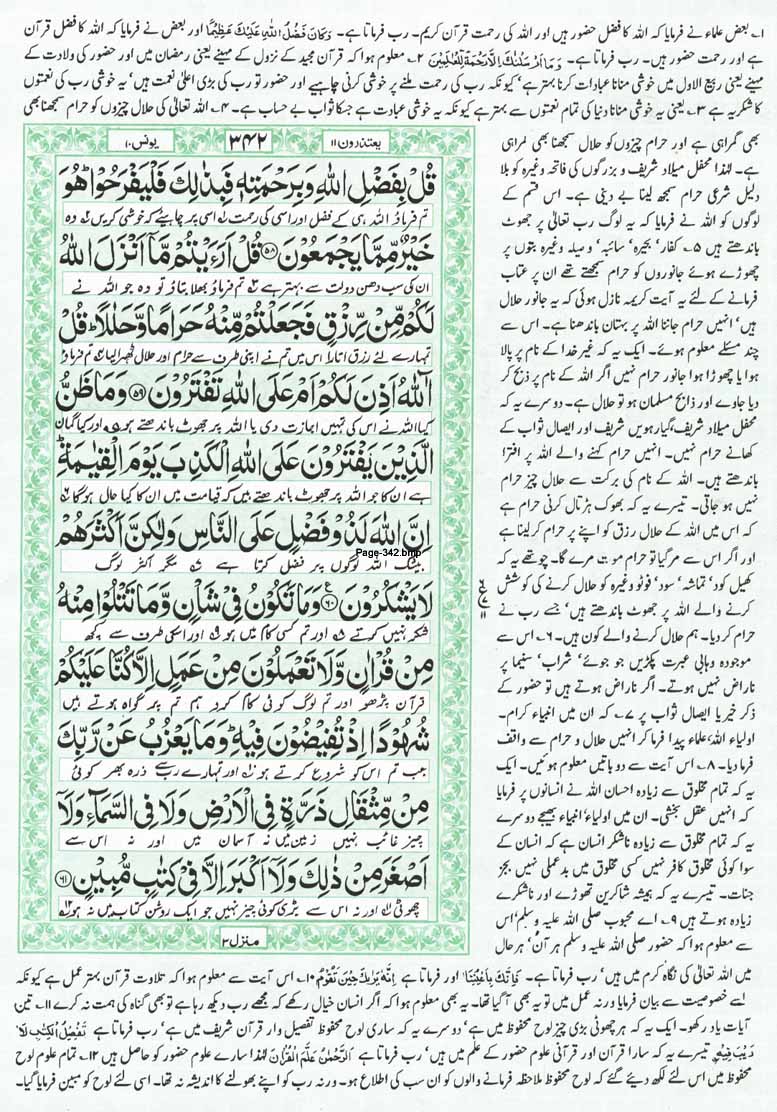 ۱؎ بعض علماء نے فرمایا کہ اللہ کا فضل حضور ہیں اور اللہ کی رحمت قرآن کریم۔ رب فرماتا ہے۔ وَكَانَ فَضْلُ اللّٰهِ عَلَيْكَ عَظِيْمًا اور بعض نے فرمایا کہ اللہ کا فضل قرآن
ہے اور رحمت حضور ہیں۔ رب فرماتا ہے۔ وَمَا اَرْسَلْنٰكَ اِلَّا رَحْمَةً لِّلْعٰلَمِيْنَ ۲؎ معلوم ہوا کہ قرآن مجید کے نزول کے مہینے یعنی رمضان میں اور حضور کی ولادت کے
مہینے یعنی ربیع الاول میں خوشی منانا عبادات کرنا بہتر ہے‘ کیونکہ رب کی رحمت ملنے پر خوشی کرنی چاہیے اور حضور تو رب کی بڑی اعلیٰ نعمت ہیں‘ یہ خوشی رب کی نعمتوں
کا شکریہ ہے ۳؎ یعنی یہ خوشی منانا دنیا کی تمام نعمتوں سے بہتر ہے کیونکہ یہ خوشی عبادت ہے جسکا ثواب بے حساب ہے۔ ۴؎ اللہ تعالٰی کی حلال چیزوں کو حرام سمجھنا بھی
بھی گمراہی ہے اور حرام چیزوں کو حلال سمجھنا بھی گمراہی
ہے۔ لہٰذا محفل میلاد شریف و بزرگوں کی فاتحہ وغیرہ کو بلا
دلیل شرعی حرام سمجھ لینا بے دینی ہے۔ اس قسم کے
لوگوں کو اللہ نے فرمایا کہ یہ لوگ رب تعالٰی پر جھوٹ
باندھتے ہیں ۵؎ کفار‘ بحیرہ‘ سائبہ‘ و صیلہ وغیرہ بتوں پر
چھوڑے ہوئے جانوروں کو حرام سمجھتے تھے ان پر عتاب
فرمانے کے لئے یہ آیت کریمہ نازل ہوئی کہ یہ جانور حلال
ہیں‘ انہیں حرام جاننا اللہ پر بہتان باندھنا ہے۔ اس سے
چند مسئلے معلوم ہوئے۔ ایک یہ کہ غیر خدا کے نام پر پالا
ہوا یا چھوڑا ہوا جانور حرام نہیں اگر اللہ کے نام پر ذبح کر
دیا جاوے اور ذابح مسلمان ہو تو حلال ہے۔ دوسرے یہ کہ
محفل میلاد شریف‘ گیارہویں شریف اور ایصال ثواب کے
کھانے حرام نہیں۔ انہیں حرام کہنے والے اللہ پر افترا
باندھتے ہیں۔ اللہ کے نام کی برکت سے حلال چیز حرام
نہیں ہو جاتی۔ تیسرے یہ کہ بھوک ہڑتال کرنی حرام ہے
کہ اس میں اللہ کے حلال رزق کو اپنے پر حرام کر لینا ہے
اور اگر اس سے مر گیا تو حرام موت مرے گا۔ چوتھے یہ کہ
کھیل کود‘ تماشہ‘ سود‘ فوٹو وغیرہ کو حلال کرنے کی کوشش
کرنے والے اللہ پر جھوٹ باندھتے ہیں‘ جسے رب نے
حرام کر دیا۔ ہم حلال کرنے والے کون ہیں۔ ۶؎ اس سے
موجودہ وہابی عبرت پکڑیں جو جوئے‘ شراب‘ سنیما پر
ناراض نہیں ہوتے۔ اگر ناراض ہوتے ہیں تو حضور کے
ذکر خیر یا ایصال ثواب پر ۷؎ کہ ان میں انبیاء کرام‘
اولیاء اللہ‘ علماء پیدا فرما کر انہیں حلال و حرام سے واقف
فرما دیا۔ ۸؎ اس آیت سے دو باتیں معلوم ہوئیں۔ ایک
یہ کہ تمام مخلوق سے زیادہ احسان اللہ نے انسانوں پر فرمایا
کہ انہیں عقل بخشی۔ ان میں اولیاء‘ انبیاء بھیجے دوسرے
یہ کہ تمام مخلوق سے زیادہ ناشکر انسان ہے کہ انسان کے
سوا کوئی مخلوق کافر نہیں کسی مخلوق میں بد عملی نہیں بجز
جنات۔ تیسرے یہ کہ ہمیشہ شاکرین تھوڑے اور ناشکرے
زیادہ ہوتے ہیں ۹؎ اے محبوب صلی اللہ علیہ وسلم‘ اس
سے معلوم ہوا کہ حضور صلی اللہ علیہ وسلم ہر آن‘ ہر حال
یعتذرون ۱۱ ۳۴۲ یونس ۱۰
قُلْ بِفَضْلِ اللّٰهِ وَبِرَحْمَتِهٖ فَبِذٰلِكَ فَلْيَفْرَحُوْا ؕ هُوَ
تم فرماؤ اللہ ہی کے فضل اور اسی کی رحمت ۱؎ اسی پر چاہیے کہ خوشی کریں ۲؎ وہ
خَيْرٌ مِّمَّا يَجْمَعُوْنَ ﴿۵۸﴾ قُلْ اَرَءَيْتُمْ مَّاۤ اَنْزَلَ اللّٰهُ
ان کی سب دھن دولت سے بہتر ہے ۳؎ تم فرماؤ بھلا بتاؤ تو وہ جو اللہ نے
لَكُمْ مِّنْ رِّزْقٍ فَجَعَلْتُمْ مِّنْهُ حَرَامًا وَّحَلٰلًا ؕ قُلْ
تمہارے لئے رزق اتارا اس میں تم نے اپنی طرف سے حرام اور حلال ٹھہرا لیا ۴؎ تم فرماؤ
آٰللّٰهُ اَذِنَ لَكُمْ اَمْ عَلَى اللّٰهِ تَفْتَرُوْنَ ﴿۵۹﴾ وَمَا ظَنُّ
کیا اللہ نے اس کی تمہیں اجازت دی یا اللہ پر جھوٹ باندھتے ہو ۵؎ اور کیا گمان
الَّذِيْنَ يَفْتَرُوْنَ عَلَى اللّٰهِ الْكَذِبَ يَوْمَ الْقِيٰمَةِ ؕ
ہے ان کا جو اللہ پر جھوٹ باندھتے ہیں کہ قیامت میں ان کا کیا حال ہو گا ۶؎
اِنَّ اللّٰهَ لَذُوْ فَضْلٍ عَلَى النَّاسِ وَلٰكِنَّ اَكْثَرَهُمْ
Page-342.bmp
بیشک اللہ لوگوں پر فضل کرتا ہے ۷؎ مگر اکثر لوگ
لَا يَشْكُرُوْنَ ﴿۶۰﴾ وَمَا تَكُوْنُ فِيْ شَاْنٍ وَّمَا تَتْلُوْا مِنْهُ
شکر نہیں کرتے ۸؎ اور تم کسی کام میں ہو ۹؎ اور اسکی طرف سے کچھ
مِنْ قُرْاٰنٍ وَّلَا تَعْمَلُوْنَ مِنْ عَمَلٍ اِلَّا كُنَّا عَلَيْكُمْ
قرآن پڑھو اور تم لوگ کوئی کام کرو ہم تم پر گواہ ہوتے ہیں
شُهُوْدًا اِذْ تُفِيْضُوْنَ فِيْهِ ؕ وَمَا يَعْزُبُ عَنْ رَّبِّكَ
جب تم اس کو شروع کرتے ہو ۱۰؎ اور تمہارے رب سے ذرہ بھر کوئی
مِنْ مِّثْقَالِ ذَرَّةٍ فِي الْاَرْضِ وَلَا فِي السَّمَآءِ وَلَاۤ
چیز غائب نہیں زمین میں نہ آسمان میں اور نہ اس سے
اَصْغَرَ مِنْ ذٰلِكَ وَلَاۤ اَكْبَرَ اِلَّا فِيْ كِتٰبٍ مُّبِيْنٍ ﴿۶۱﴾
چھوٹی ۱۱؎ اور نہ اس سے بڑی کوئی چیز نہیں جو ایک روشن کتاب میں نہ ہو ۱۲؎
منزل ۳
میں اللہ تعالٰی کی نگاہ کرم میں ہیں‘ رب فرماتا ہے۔ فَاِنَّكَ بِاَعْيُنِنَا اور فرماتا ہے اِنَّهٗ يَرٰىكَ حِيْنَ تَقُوْمُ ۱۰؎ اس آیت سے معلوم ہوا کہ تلاوت قرآن بہتر عمل ہے کیونکہ
اسے خصوصیت سے بیان فرمایا ورنہ عمل میں تو یہ بھی آ گیا تھا۔ یہ بھی معلوم ہوا کہ اگر انسان خیال رکھے کہ مجھے رب دیکھ رہا ہے تو بھی گناہ کی ہمت نہ کرے ۱۱؎ تین
آیات یاد رکھو۔ ایک یہ کہ ہر چھوٹی بڑی چیز لوح محفوظ میں ہے‘ دوسرے یہ کہ ساری لوح محفوظ تفصیل وار قرآن شریف میں ہے‘ رب فرماتا ہے تَفْصِيْلَ الْكِتٰبِ لَا
رَيْبَ فِيْهِ تیسرے یہ کہ سارا قرآن اور قرآنی علوم حضور کے علم میں ہیں‘ رب فرماتا ہے اَلرَّحْمٰنُ عَلَّمَ الْقُرْاٰنَ لہٰذا سارے علوم حضور کو حاصل ہیں ۱۲؎ تمام علوم لوح
محفوظ میں اس لئے لکھ دیئے گئے کہ لوح محفوظ ملاحظہ فرمانے والوں کو ان سب کی اطلاع ہو۔ ورنہ رب کو اپنے بھولنے کا اندیشہ نہ تھا۔ اسی لئے لوح کو مبین فرمایا گیا۔